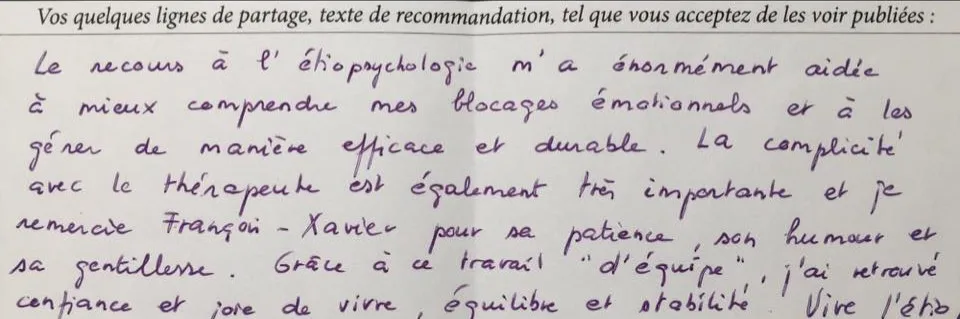 Vos quelques lignes de partage, texte de recommandation, tel que vous acceptez de les voir publiées :
Le recours à l'étiopsychologie m'a énormément aidée
à mieux comprendre mes blocages émotionnels et à les
gérer de manière efficace et durable. La complicité
avec le thérapeute est également très importante et je
remercie François-Xavier pour sa patience, son humour et
sa gentillesse. Grâce à ce travail "d'équipe", j'ai retrouvé
confiance et joie de vivre, équilibre et stabilité. Vive l'étio